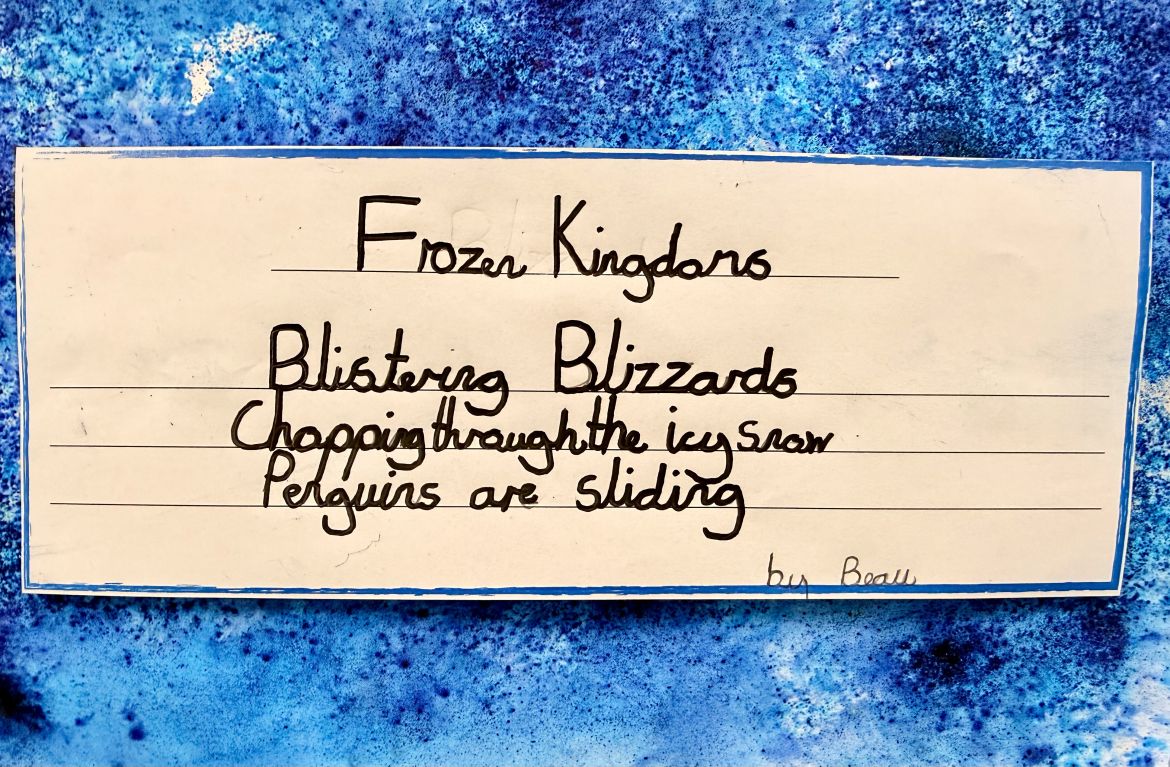 Frozen Kingdoms
Blistering Blizzards
Chopping through the icy snow
Penguins are sliding
by Beau